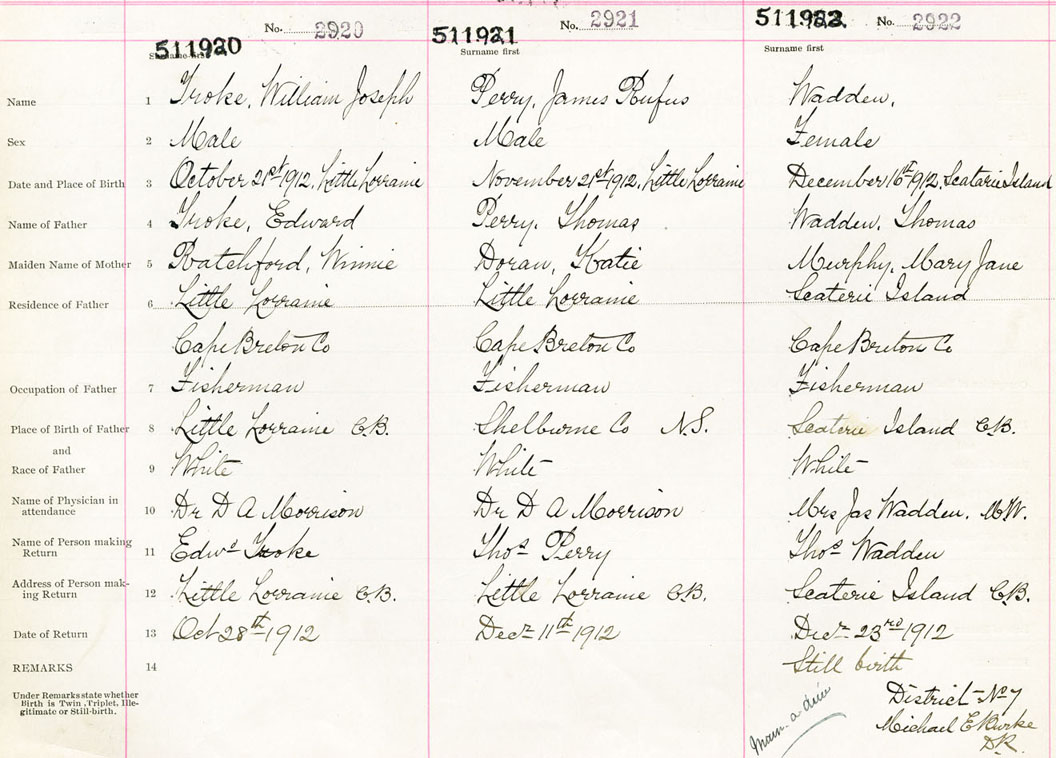 No. 2920 No. 2921 No. 2922
511920 511921 511922
Surname first Surname first Surname first
Name 1 Troke, William Joseph Perry, James Rufus Wadden,
Sex 2 Male Male Female
Date and Place of Birth 3 October 21st 1912, Little Lorraine November 21st 1912, Little Lorraine December 16th 1912, Scatarie Island
Name of Father 4 Troke, Edward Perry, Thomas Wadden, Thomas
Maiden Name of Mother 5 Ratchford, Winnie Doran, Katie Murphy, Mary Jane
Residence of Father 6 Little Lorraine Little Lorraine Scaterie Island
Cape Breton Co Cape Breton Co Cape Breton Co
Occupation of Father 7 Fisherman Fisherman Fisherman
Place of Birth of Father 8 Little Lorraine C.B. Shelburne Co N.S. Scaterie Island C.B.
and
Race of Father 9 White White White
Name of Physician in
attendance 10 Dr D A Morrison Dr D A Morrison Mrs Jas Wadden, M.W.
Name of Person making
Return 11 Edwd Troke Thos Perry Thos Wadden
Address of Person mak-
ing Return 12 Little Lorraine C.B. Little Lorraine C.B. Scaterie Island C.B.
Date of Return 13 Oct 28th 1912 Decr 11th 1912 Decr 23rd 1912
REMARKS 14 Still birth
Under Remarks state whether
Birth is Twin, Triplet, Ille-
gitimate or Still-birth.
District No 7
Michael E Burke
D.R.